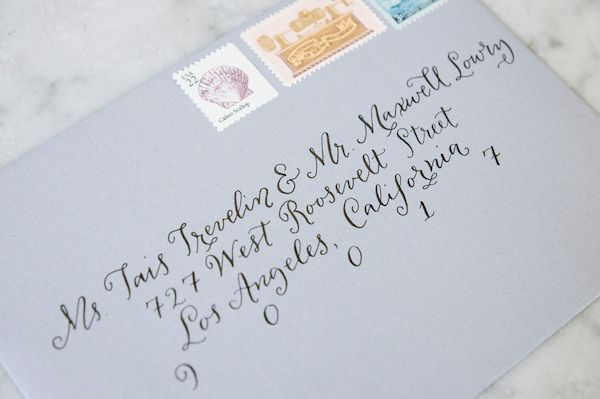 USA
22
Calico Scallop
Ms. Tais Trevelin & Mr. Maxwell Lowry
727 West Roosevelt Street
Los Angeles, California
9 0 0 1 7